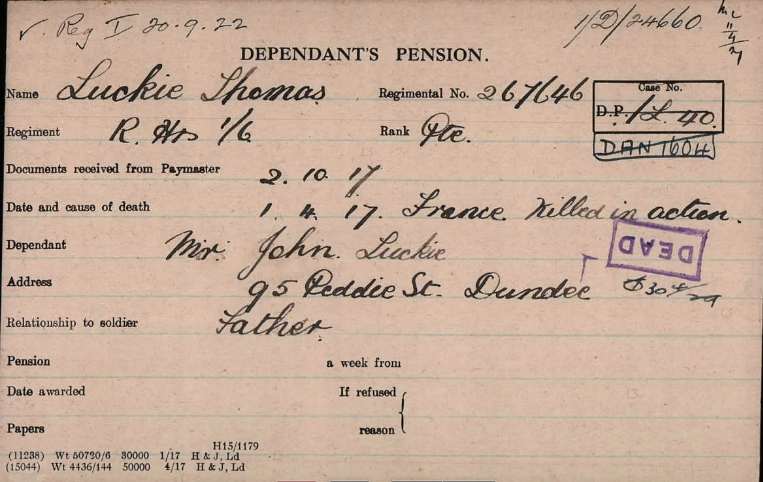 ✓. Reg I 20.9.22
1/D/24660.
DEPENDANT'S PENSION.
Name Luckie Thomas Regimental No. 267646
Case No.
D.P. 1L. 40.
Regiment R. Hrs 1/6 Rank Pte.
DAN 1604
Documents received from Paymaster 2. 10. 17
Date and cause of death 1. 4. 17. France. Killed in action.
Dependant Mr. John. Luckie
DEAD
Address 95 Peddie St. Dundee
Relationship to soldier Father
Pension a week from
Date awarded If refused
Papers reason
H15/1179
(11238) Wt 50720/6 30000 1/17 H & J, Ld
(15044) Wt 4436/144 50000 4/17 H & J, Ld